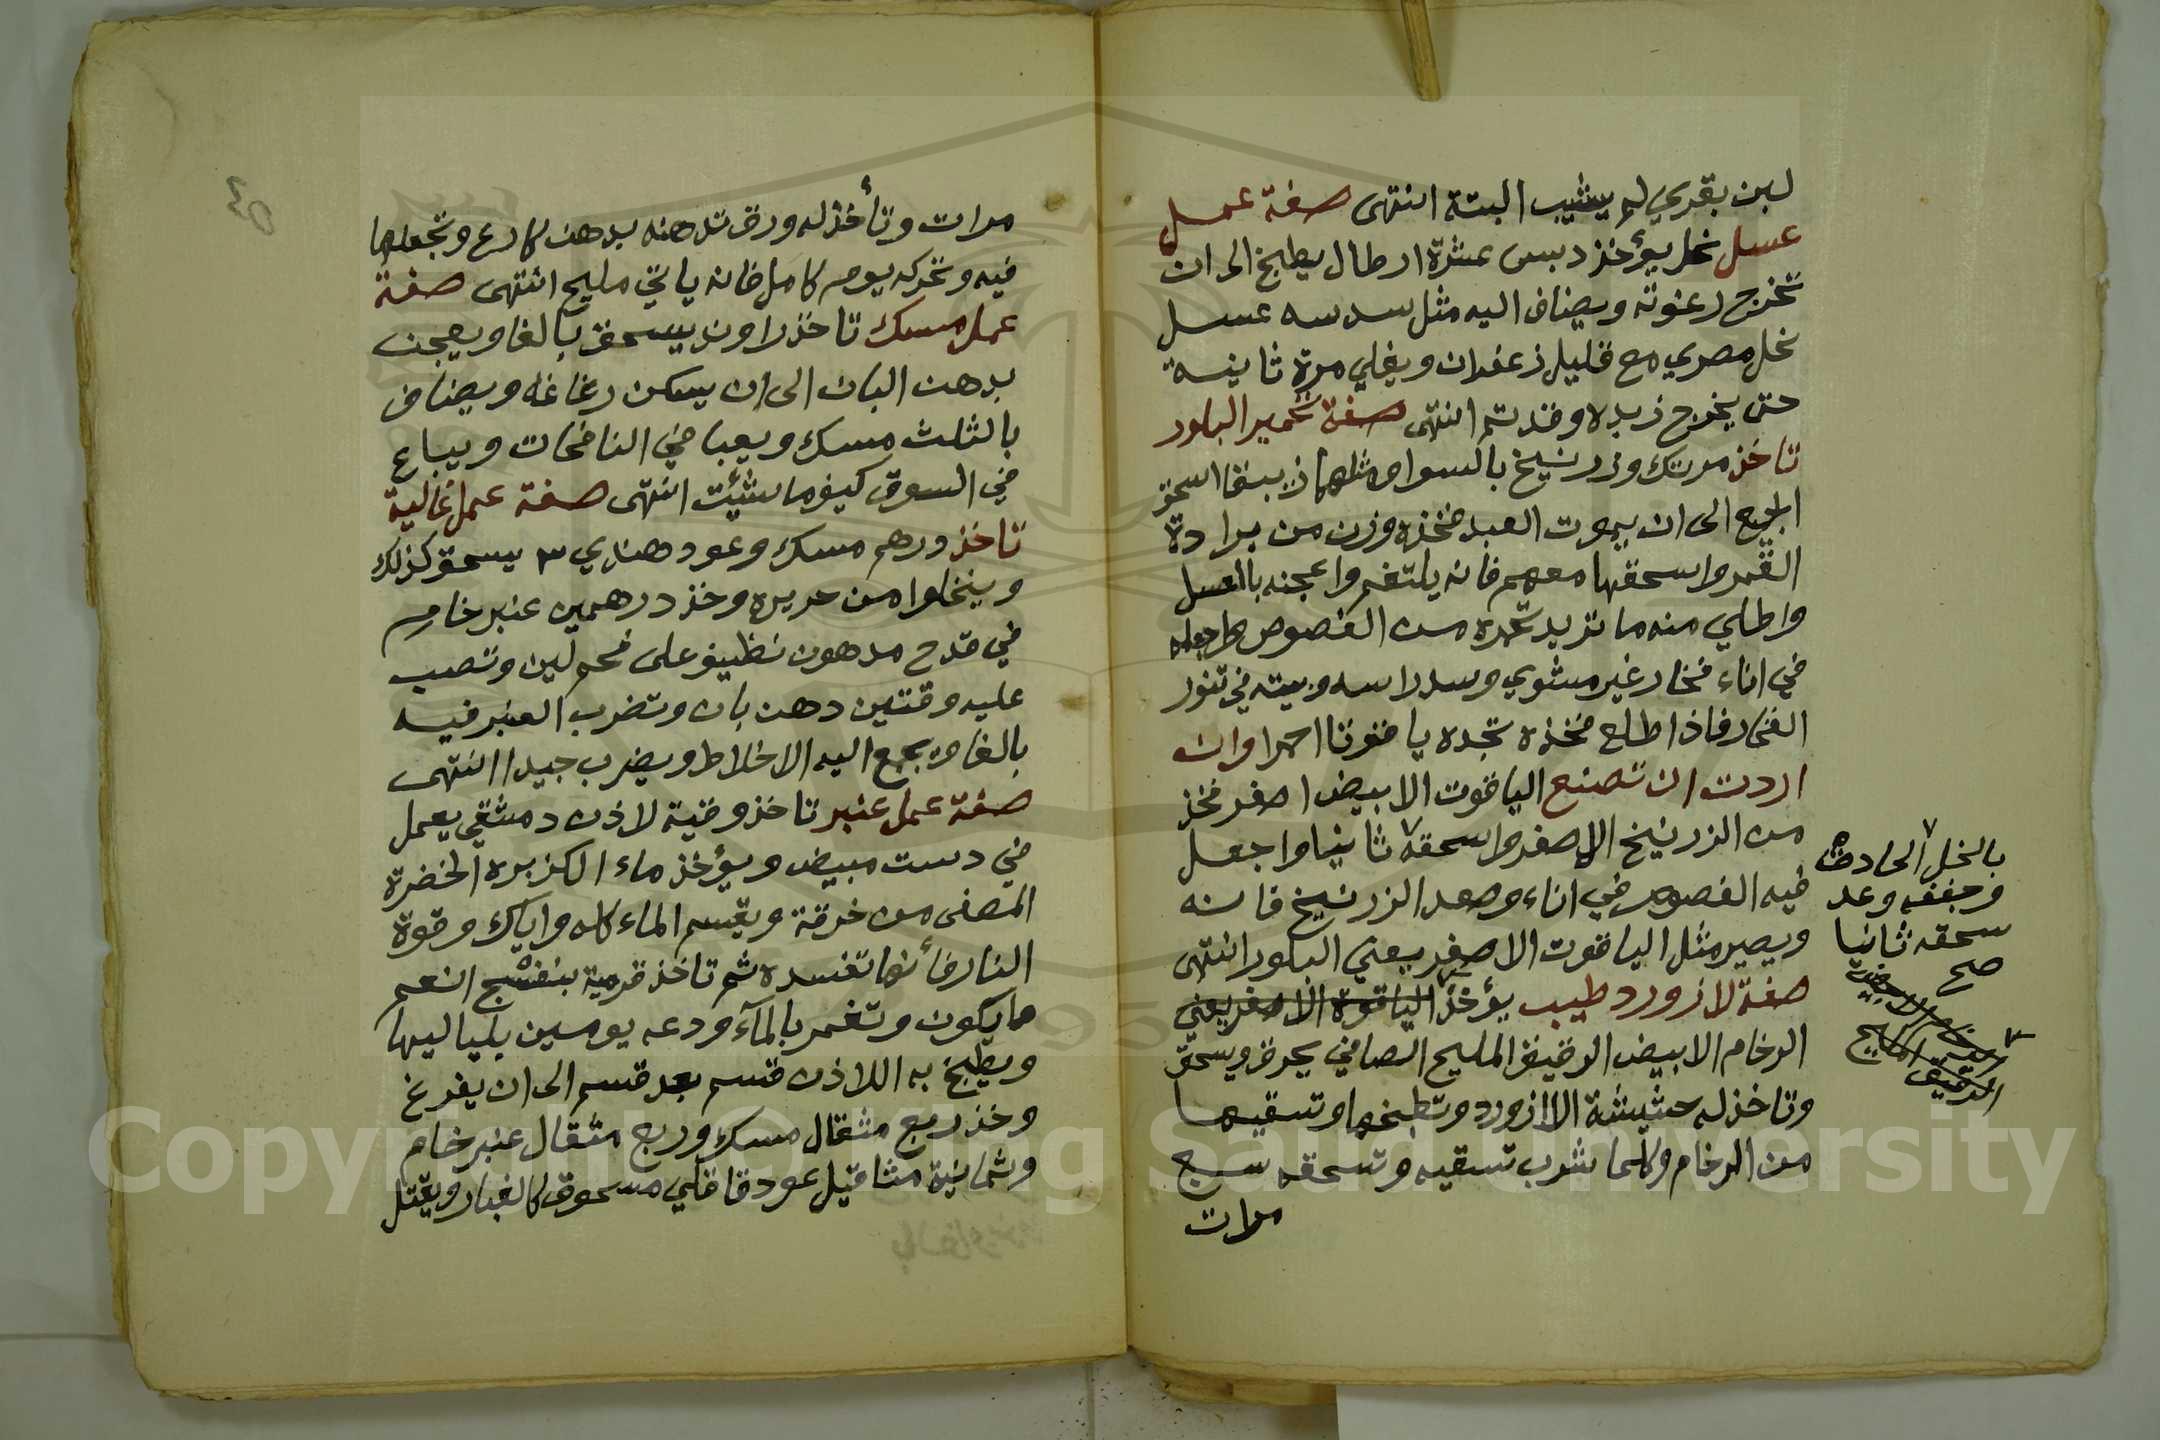 لبن بقري لم يشيب البتة انتهى صفة عمل
عسل نحل يؤخذ دبس عشرة ارطال يطبخ الى ان
تخرج رغوته ويضاف اليه مثل سدسه عسل
نحل مصري مع قليل زعفران ويغلي مرة ثانية
حتى يخرج زبده وقد تم انتهى صفة تحمير البلور
تاخذ مرتك وزرنيخ بالسوا ومثلهما زيبقا اسحق
الجميع الى ان يموت العبد فخذه وزن من برادة
القمر واسحقها معهم فانه يلتغم واعجنه بالعسل
واطلي منه ما تريد تحمره من الفصوص واجعله
في اناء فخار غير مشوي وسد راسه وبيته في تنور
الفخار فاذا طلع فخذه تجده ياقوتا احمرا وان
اردت ان تصنع الياقوت الابيض اصفر فخذ
من الزرنيخ الاصفر واسحقه ثانيا واجعل
فيه الفصوص في اناء وصعد الزرنيخ فانه
ويصير مثل الياقوت الاصفر يعني البلور انتهى
صفة لازورد طيب يؤخذ الياقوة الاصفر يعني
الرخام الابيض الرقيق المليح الصافي يحرق ويسحق
وتاخذ له حشيشة اللازورد وتطبخها وتسقيها
من الرخام وكلما شرب تسقيه وتسحقه سبع
مرات
بالخل الحادق
وجففه وعد
سحقه ثانيا
صح
الرقيق المليح
مرات وتأخذ له ورق تدهنه بدهن كارع وتجعلها
فيه وتحركه يوم كامل فانه ياتي مليح انتهى صفة
عمل مسك تاخذ راوند يسحق بالغا ويعجن
بدهن البان الى ان يسكن رغاغه ويضاف
بالثلث مسك ويعبا في النافحات ويباع
في السوق كيف ما شئت انتهى صفة عمل غالية
تاخذ درهم مسك وعود هندي ٣ يسحق كذلك
وينخلوا من حريره وخذ درهمين عنبر خام
في قدح مدهون نظيف على فحم لين وتصب
عليه وقتين دهن بان وتضرب العنبر فيه
بالغا وبجمع اليه الاخلاط ويضرب جيدا انتهى
صفة عمل عنبر تاخذ وقية لاذن دمشقي يعمل
في دست مبيض ويؤخذ ماء الكزبره الخضرة
المصفى من خرقة ويقسم الماء كله واياك وقوة
النار فأنها تفسده ثم تاخذ قرمية بنفسج انعم
ما يكون وتغمر بالمآء ودعه يومين بلياليها
ويطبخ به اللاذن قسم بعد قسم الى ان يفرغ
وخذ ربع مثقال مسك وربع مثقال عنبر خام
وثمانية مثاقيل عود قاقلي مسحوق كالغبار ويقتل
Copyright © King Saud University